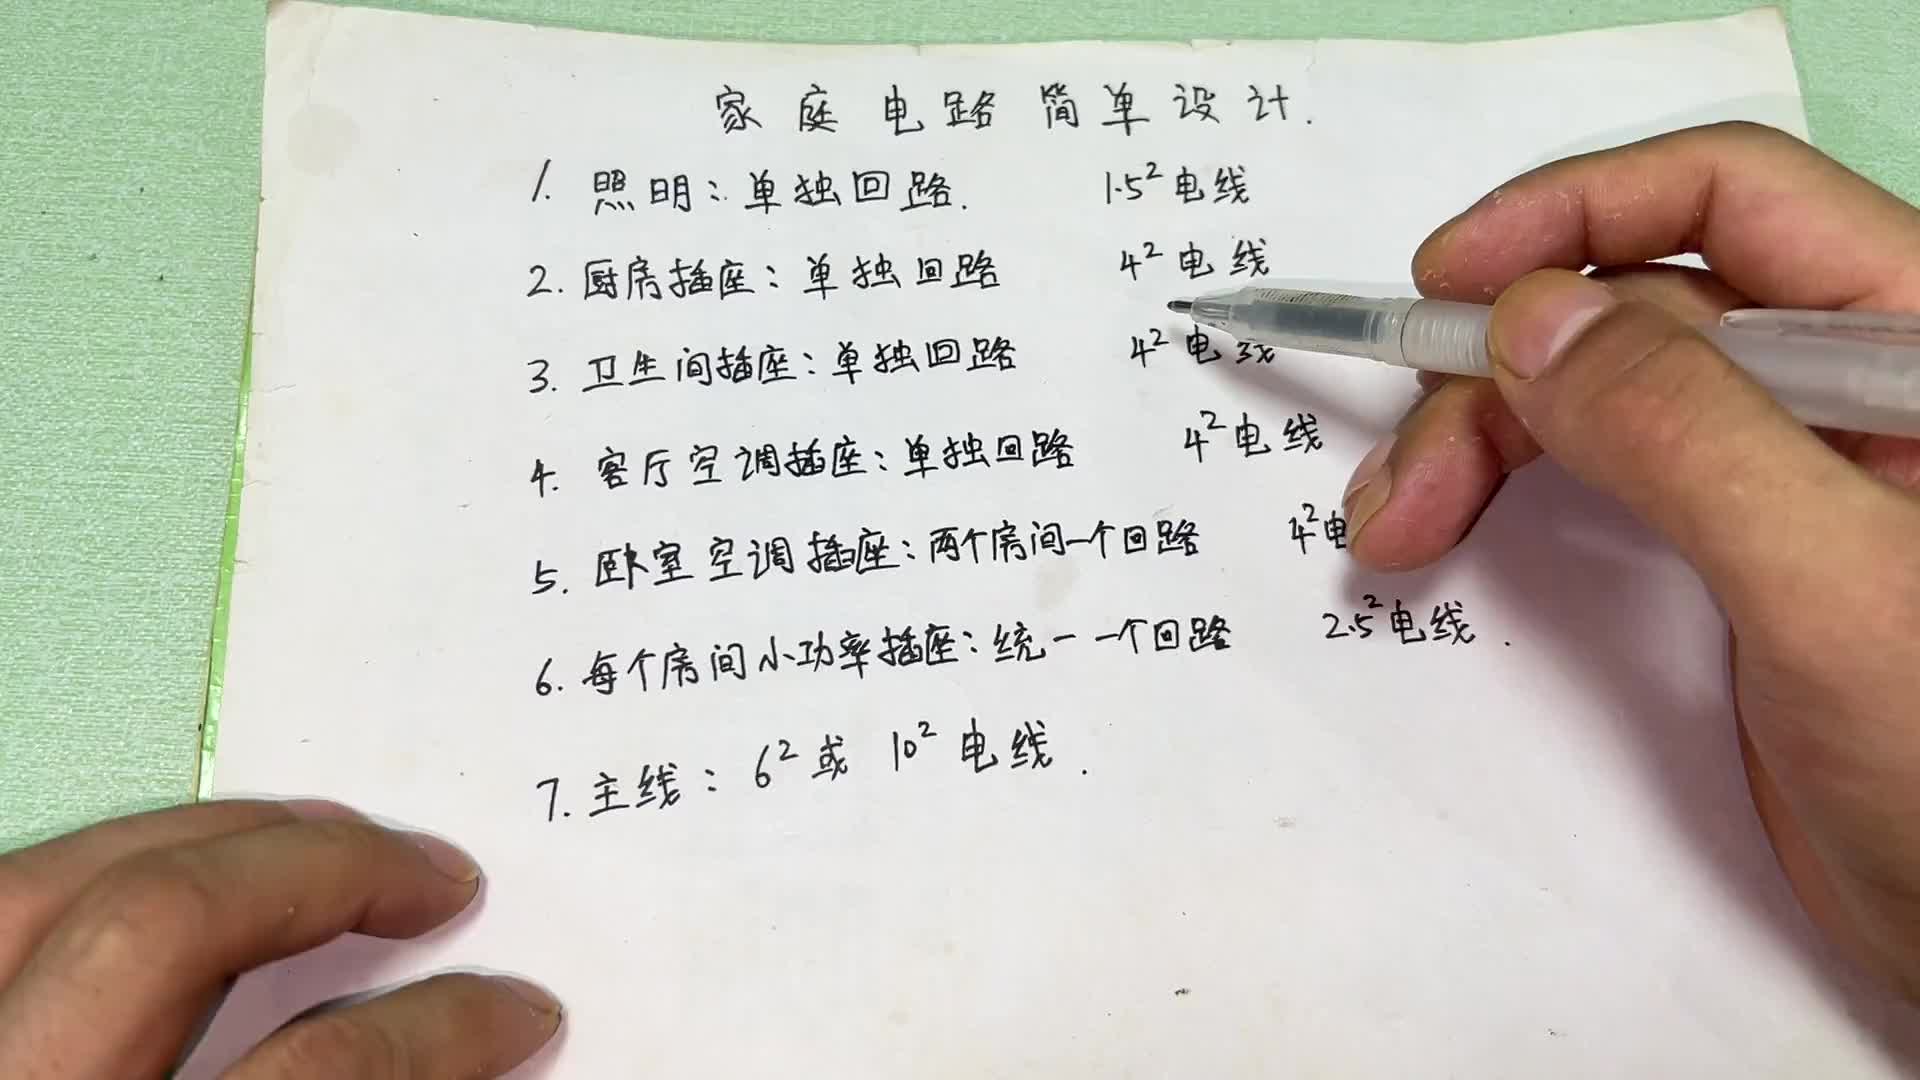 家庭电路简单设计.
1. 照明：单独回路. 1.5² 电线
2. 厨房插座：单独回路 4² 电线
3. 卫生间插座：单独回路 4² 电线
4. 客厅空调插座：单独回路 4² 电线
5. 卧室空调插座：两个房间一个回路 4² 电
6. 每个房间小功率插座：统一一个回路 2.5² 电线.
7. 主线：6² 或 10² 电线.